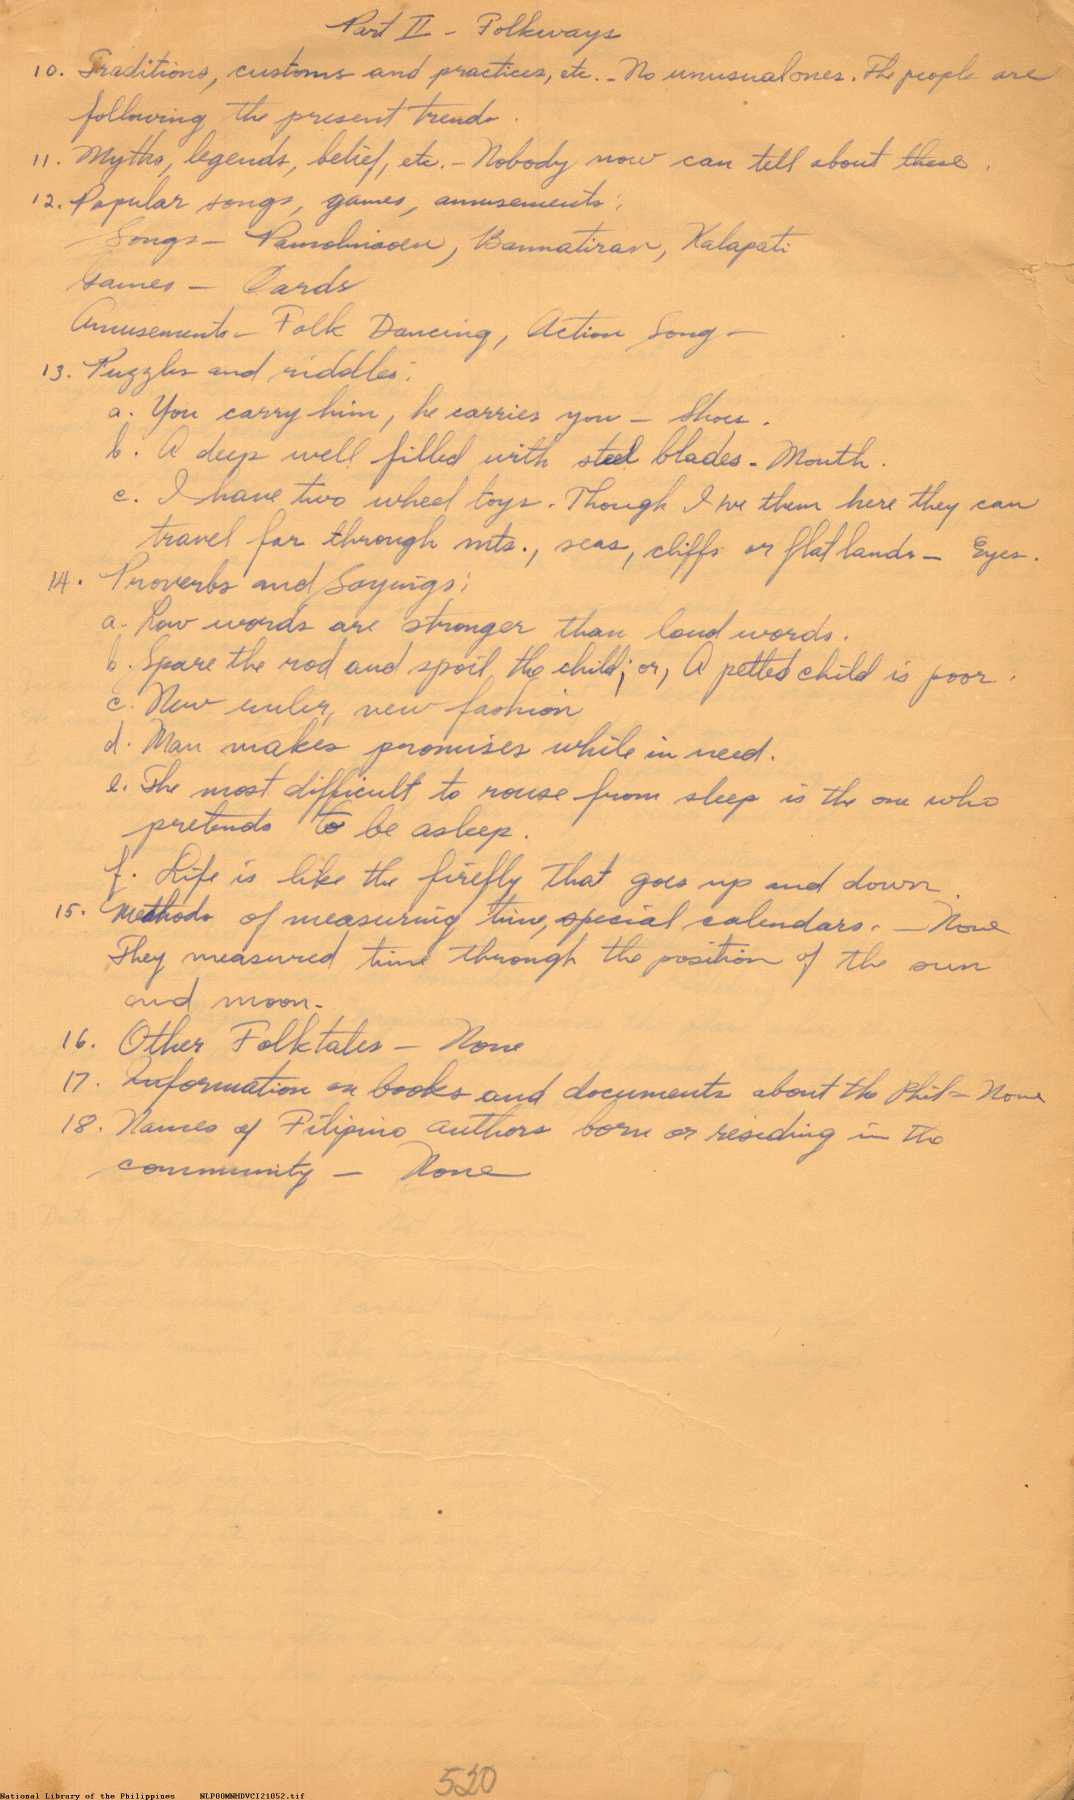 Part II - Folkways
10. Traditions, customs and practices, etc. - No unusual ones. The people are
following the present trends.
11. Myths, legends, belief, etc. - Nobody now can tell about these.
12. Popular songs, games, amusements:
Songs - Pamulinawen, Bannatiran, Kalapati
Games - Cards
Amusements - Folk Dancing, Action Song -
13. Puzzles and riddles:
a. You carry him, he carries you - Shoes.
b. A deep well filled with steel blades - Mouth.
c. I have two wheel toys. Though I've them here they can
travel far through mts., seas, cliffs or flatlands - Eyes.
14. Proverbs and Sayings:
a. Low words are stronger than loud words.
b. Spare the rod and spoil the child; or, A petted child is poor.
c. New ruler, new fashion
d. Man makes promises while in need.
e. The most difficult to rouse from sleep is the one who
pretends to be asleep.
f. Life is like the firefly that goes up and down.
15. Methods of measuring time, special calendars. - None
They measured time through the position of the sun
and moon.
16. Other Folktales - None
17. Information on books and documents about the Phil - None
18. Names of Filipino authors born or residing in the
community - None
520
National Library of the Philippines NLP00MNHDVCI21052.tif